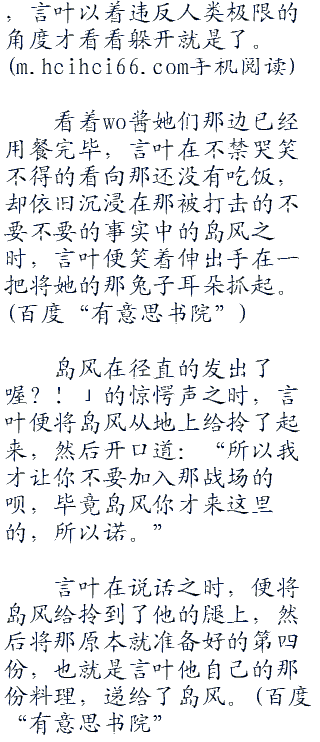 ，言叶以着违反人类极限的
角度才看看躲开就是了。
(m.hcihci66.com手机阅读)
看着wo酱她们那边已经
用餐完毕，言叶在不禁哭笑
不得的看向那还没有吃饭，
却依旧沉浸在那被打击的不
要不要的事实中的岛风之
时，言叶便笑着伸出手在一
把将她的那兔子耳朵抓起。
(百度“有意思书院”)
岛风在径直的发出了
喔？！」的惊愕声之时，言
叶便将岛风从地上给拎了起
来，然后开口道：“所以我
才让你不要加入那战场的
呗，毕竟岛风你才来这里
的，所以诺。”
言叶在说话之时，便将
岛风给拎到了他的腿上，然
后将那原本就准备好的第四
份，也就是言叶他自己的那
份料理，递给了岛风。(百度
“有意思书院”